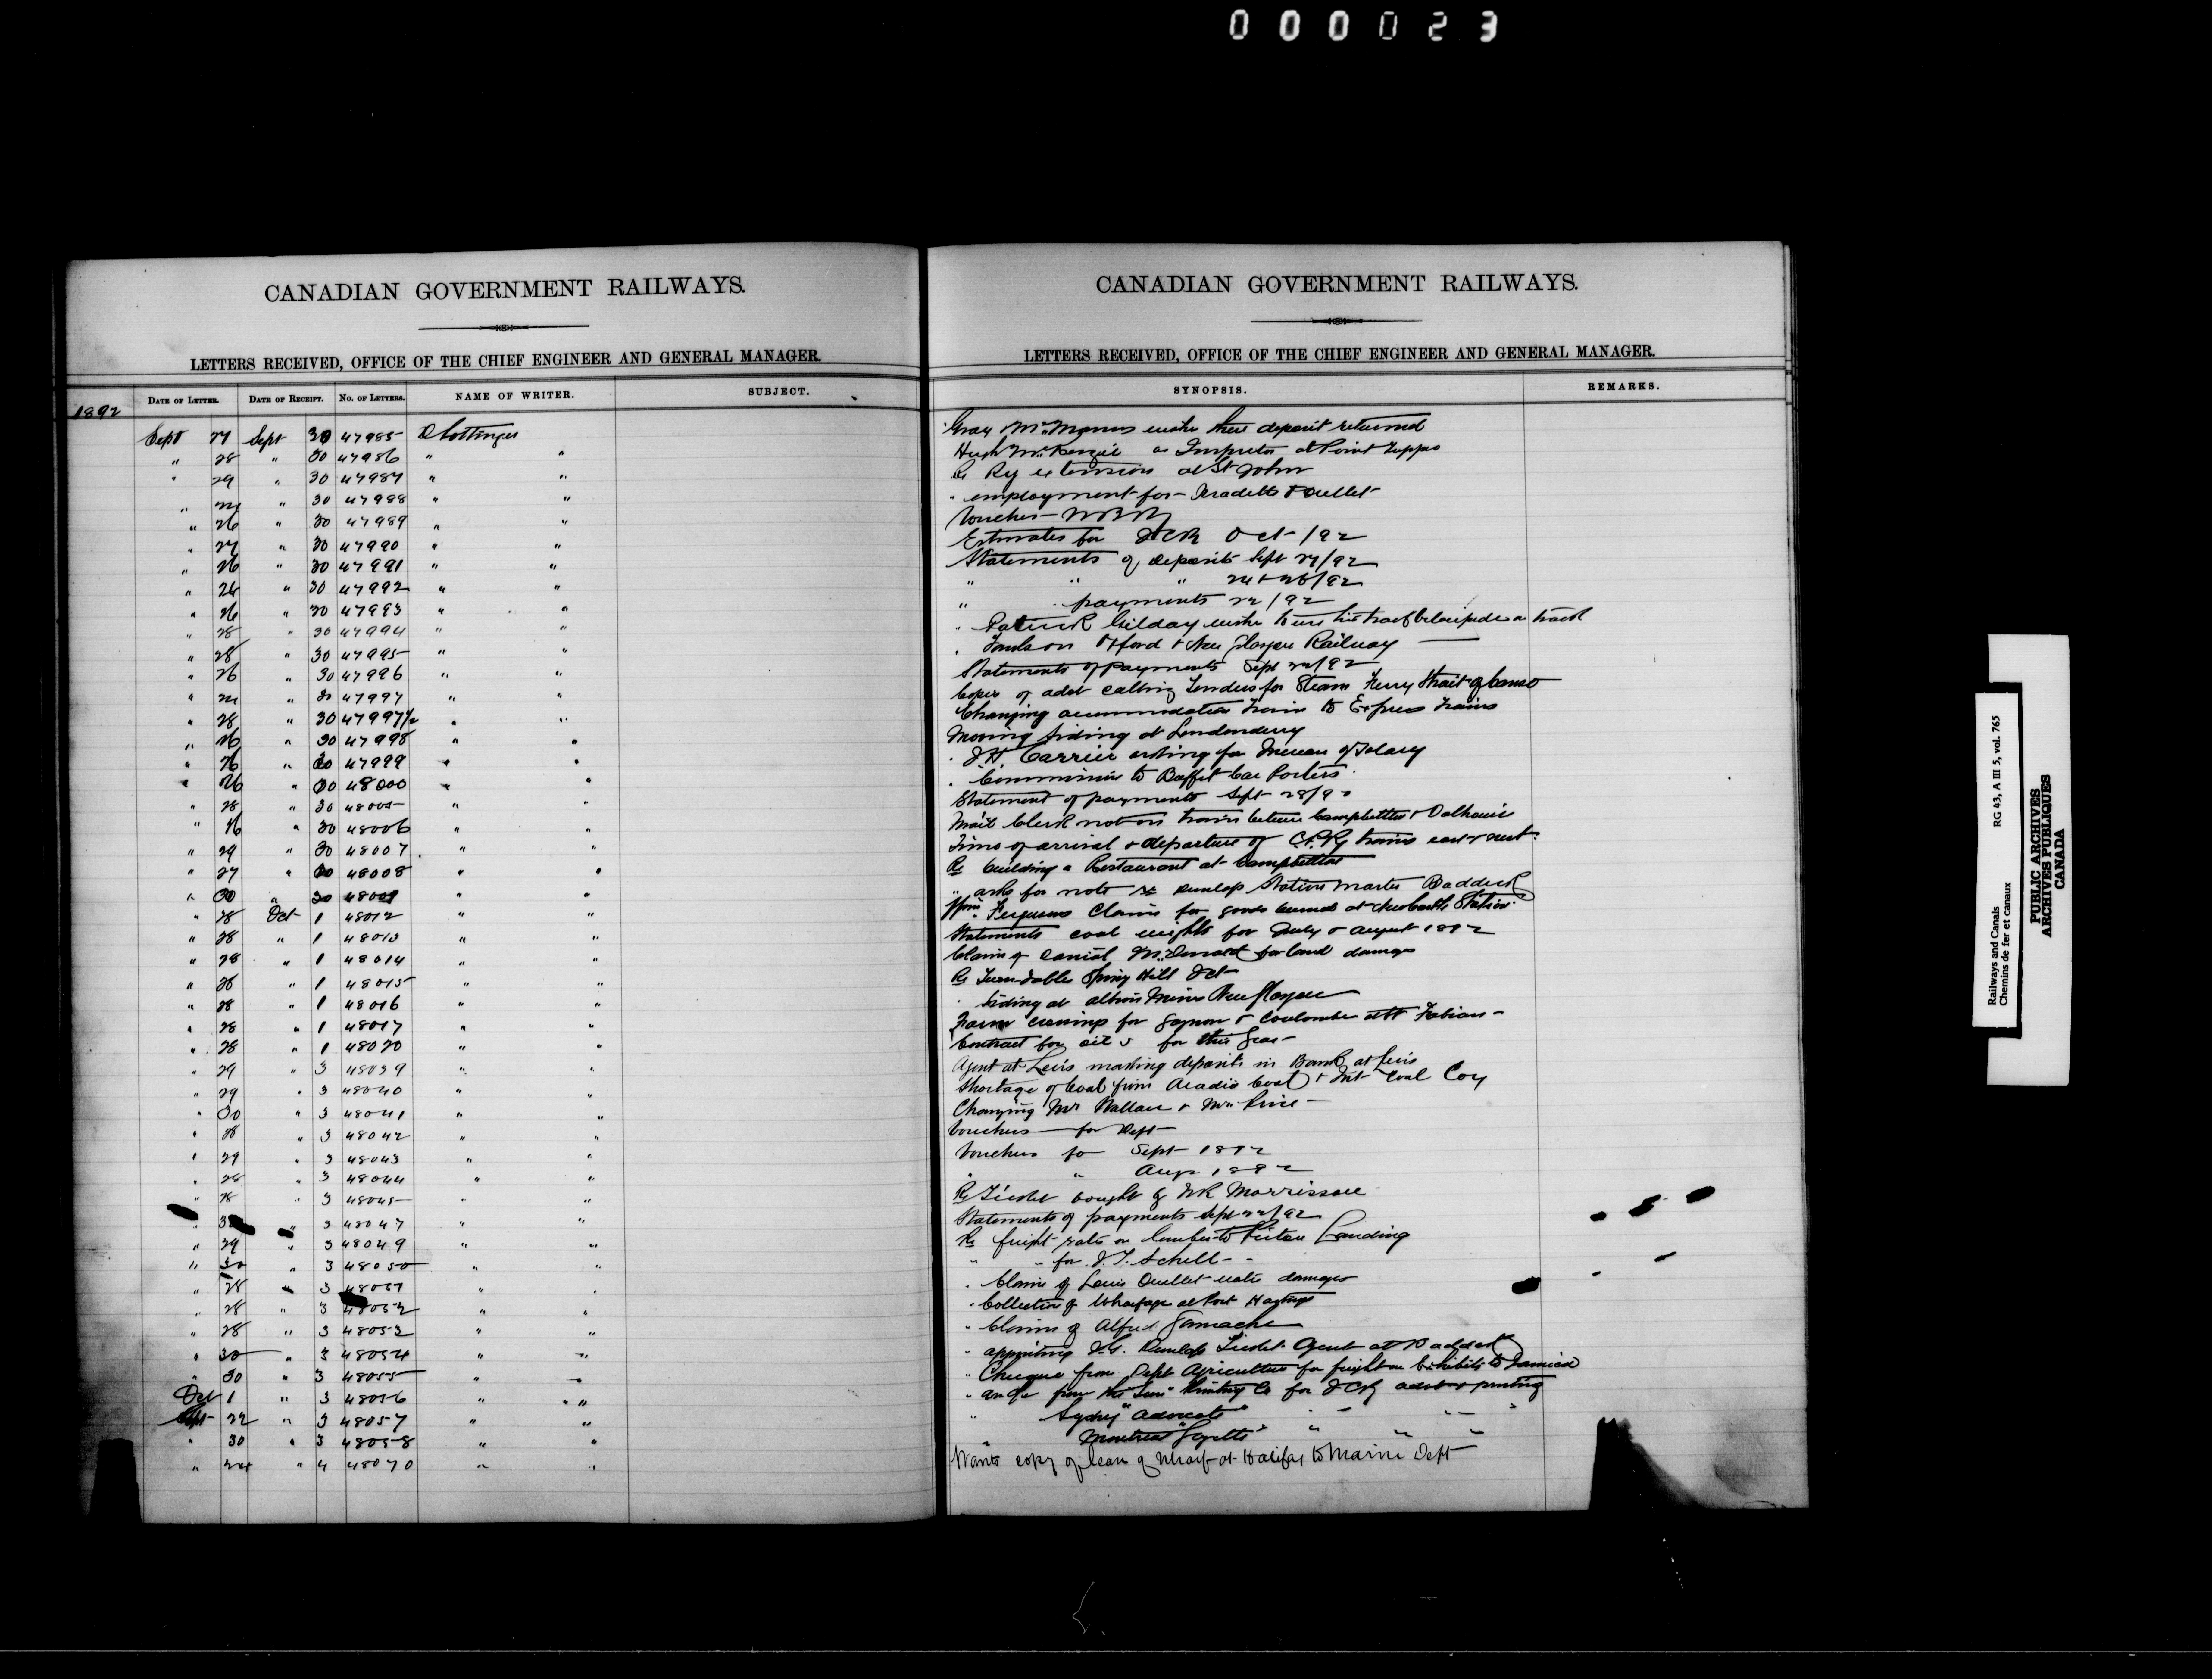 000023
CANADIAN GOVERNMENT RAILWAYS.
LETTERS RECEIVED, OFFICE OF THE CHIEF ENGINEER AND GENERAL MANAGER.
DATE OF LETTER. DATE OF RECEIPT. NO. OF LETTERS. NAME OF WRITER. SUBJECT.
1892
Sept 27 Sept 30 47985 D Pottinger
" 28 " 30 47986 " "
" 29 " 30 47987 " "
" " 30 47988 " "
" 26 " 30 47989 " "
" 27 " 30 47990 " "
" 26 " 30 47991 " "
" 26 " 30 47992 " "
" 26 " 30 47993 " "
" 28 " 30 47994 " "
" 28 " 30 47995 " "
" 26 " 30 47996 " "
" " 30 47997 " "
" 28 " 30 47997½ " "
" 26 " 30 47998 " "
" 26 " 30 47999 " "
" 26 " 30 48000 " "
" 28 " 30 48005 " "
" 26 " 30 48006 " "
" 29 " 30 48007 " "
" 27 " 30 48008 " "
" 30 " 30 48009 " "
" 28 Oct 1 48012 " "
" 28 " 1 48013 " "
" 28 " 1 48014 " "
" 28 " 1 48015 " "
" 28 " 1 48016 " "
" 28 " 1 48017 " "
" 28 " 1 48020 " "
" 29 " 3 48039 " "
" 29 " 3 48040 " "
" 30 " 3 48041 " "
" 28 " 3 48042 " "
" 29 " 3 48043 " "
" 28 " 3 48044 " "
" 28 " 3 48045 " "
" " 3 48047 " "
" 29 " 3 48049 " "
" 30 " 3 48050 " "
" 28 " 3 48051 " "
" 28 " 3 48052 " "
" 28 " 3 48053 " "
" 30 " 3 48054 " "
" 30 " 3 48055 "
Oct 1 " 3 48056 " "
Sept 22 " 3 48057 " "
" 30 " 3 48058 " "
" 24 " 4 48070 " "
CANADIAN GOVERNMENT RAILWAYS.
LETTERS RECEIVED, OFFICE OF THE CHIEF ENGINEER AND GENERAL MANAGER.
SYNOPSIS. REMARKS.
Gray McManus wishes their deposit returned
Hugh McKenzie as Inspector at Point Tupper
Re Ry extension at St John
" employment for Ouellet
Vouchers
Estimates for ICR Oct /92
Statements of deposits Sept 27/92
" " " 24 & 26/92
" payments 22/92
" Patrick Gilday wishes to use his on track
" Oxford & New Glasgow Railway
Statements of payments Sept 22/92
Copies of advt calling Tenders for Steam Ferry Strait of Canso
Changing accommodation train to Express trains
Moving siding at Londonderry
" Carrier asking for Increase of Salary
" Commission to Buffet Car Porters
Statement of payments Sept 28/92
Mail Clerk not on trains between Campbellton & Dalhousie
Time of arrival & departure of C.P.Ry trains east & west
Re building a Restaurant at Campbellton
" asks for note re Dunlop Station Master Baddeck
Ferguson Claim for goods burned at Newcastle Station
Statements coal weights for July & August 1892
Claim of Daniel McDonald for land damages
Re Turn-tables Spring Hill Jct
" Siding at Albion Mines New Glasgow
Farm crossings for Gagnon & Coulombe at St Fabian
Contract for oils for this year
Agent at Levis making deposits in Bank at Levis
Shortage of Coal from Acadia Coal & Int Coal Coy
Changing Mr Wallace & Mr Price
Vouchers for Dept
Vouchers for Sept 1892
" " Aug 1892
Re Ticket bought by Morrissee
Statements of payments Sept 22/92
Re freight rate on lumber to Pictou Landing
" " for J.T. Schell
" Claim of Louis Ouellet damages
" Collection of Wharfage at Port Hastings
" Claim of Alfred Gamache
" appointing Dunlop Ticket Agent at Baddeck
" Cheque from Dept Agriculture for freight on Exhibits to Jamaica
" from the "Sun" Printing Co for ICRy advt & printing
" Sydney "Advocate"
Montreal "Gazette"
Wants copy of lease of wharf at Halifax to Marine Dept
Railways and Canals
Chemins de fer et canaux
RG 43, A III 5, vol. 765
PUBLIC ARCHIVES
ARCHIVES PUBLIQUES
CANADA